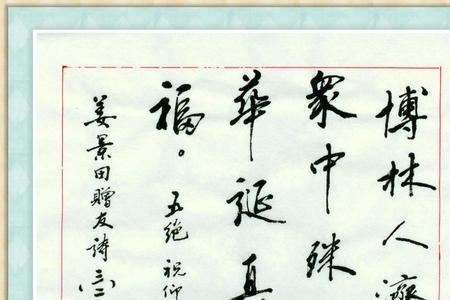 博林人
衆中殊
華誕真
福。五绝 祝仰
姜景田贈友詩